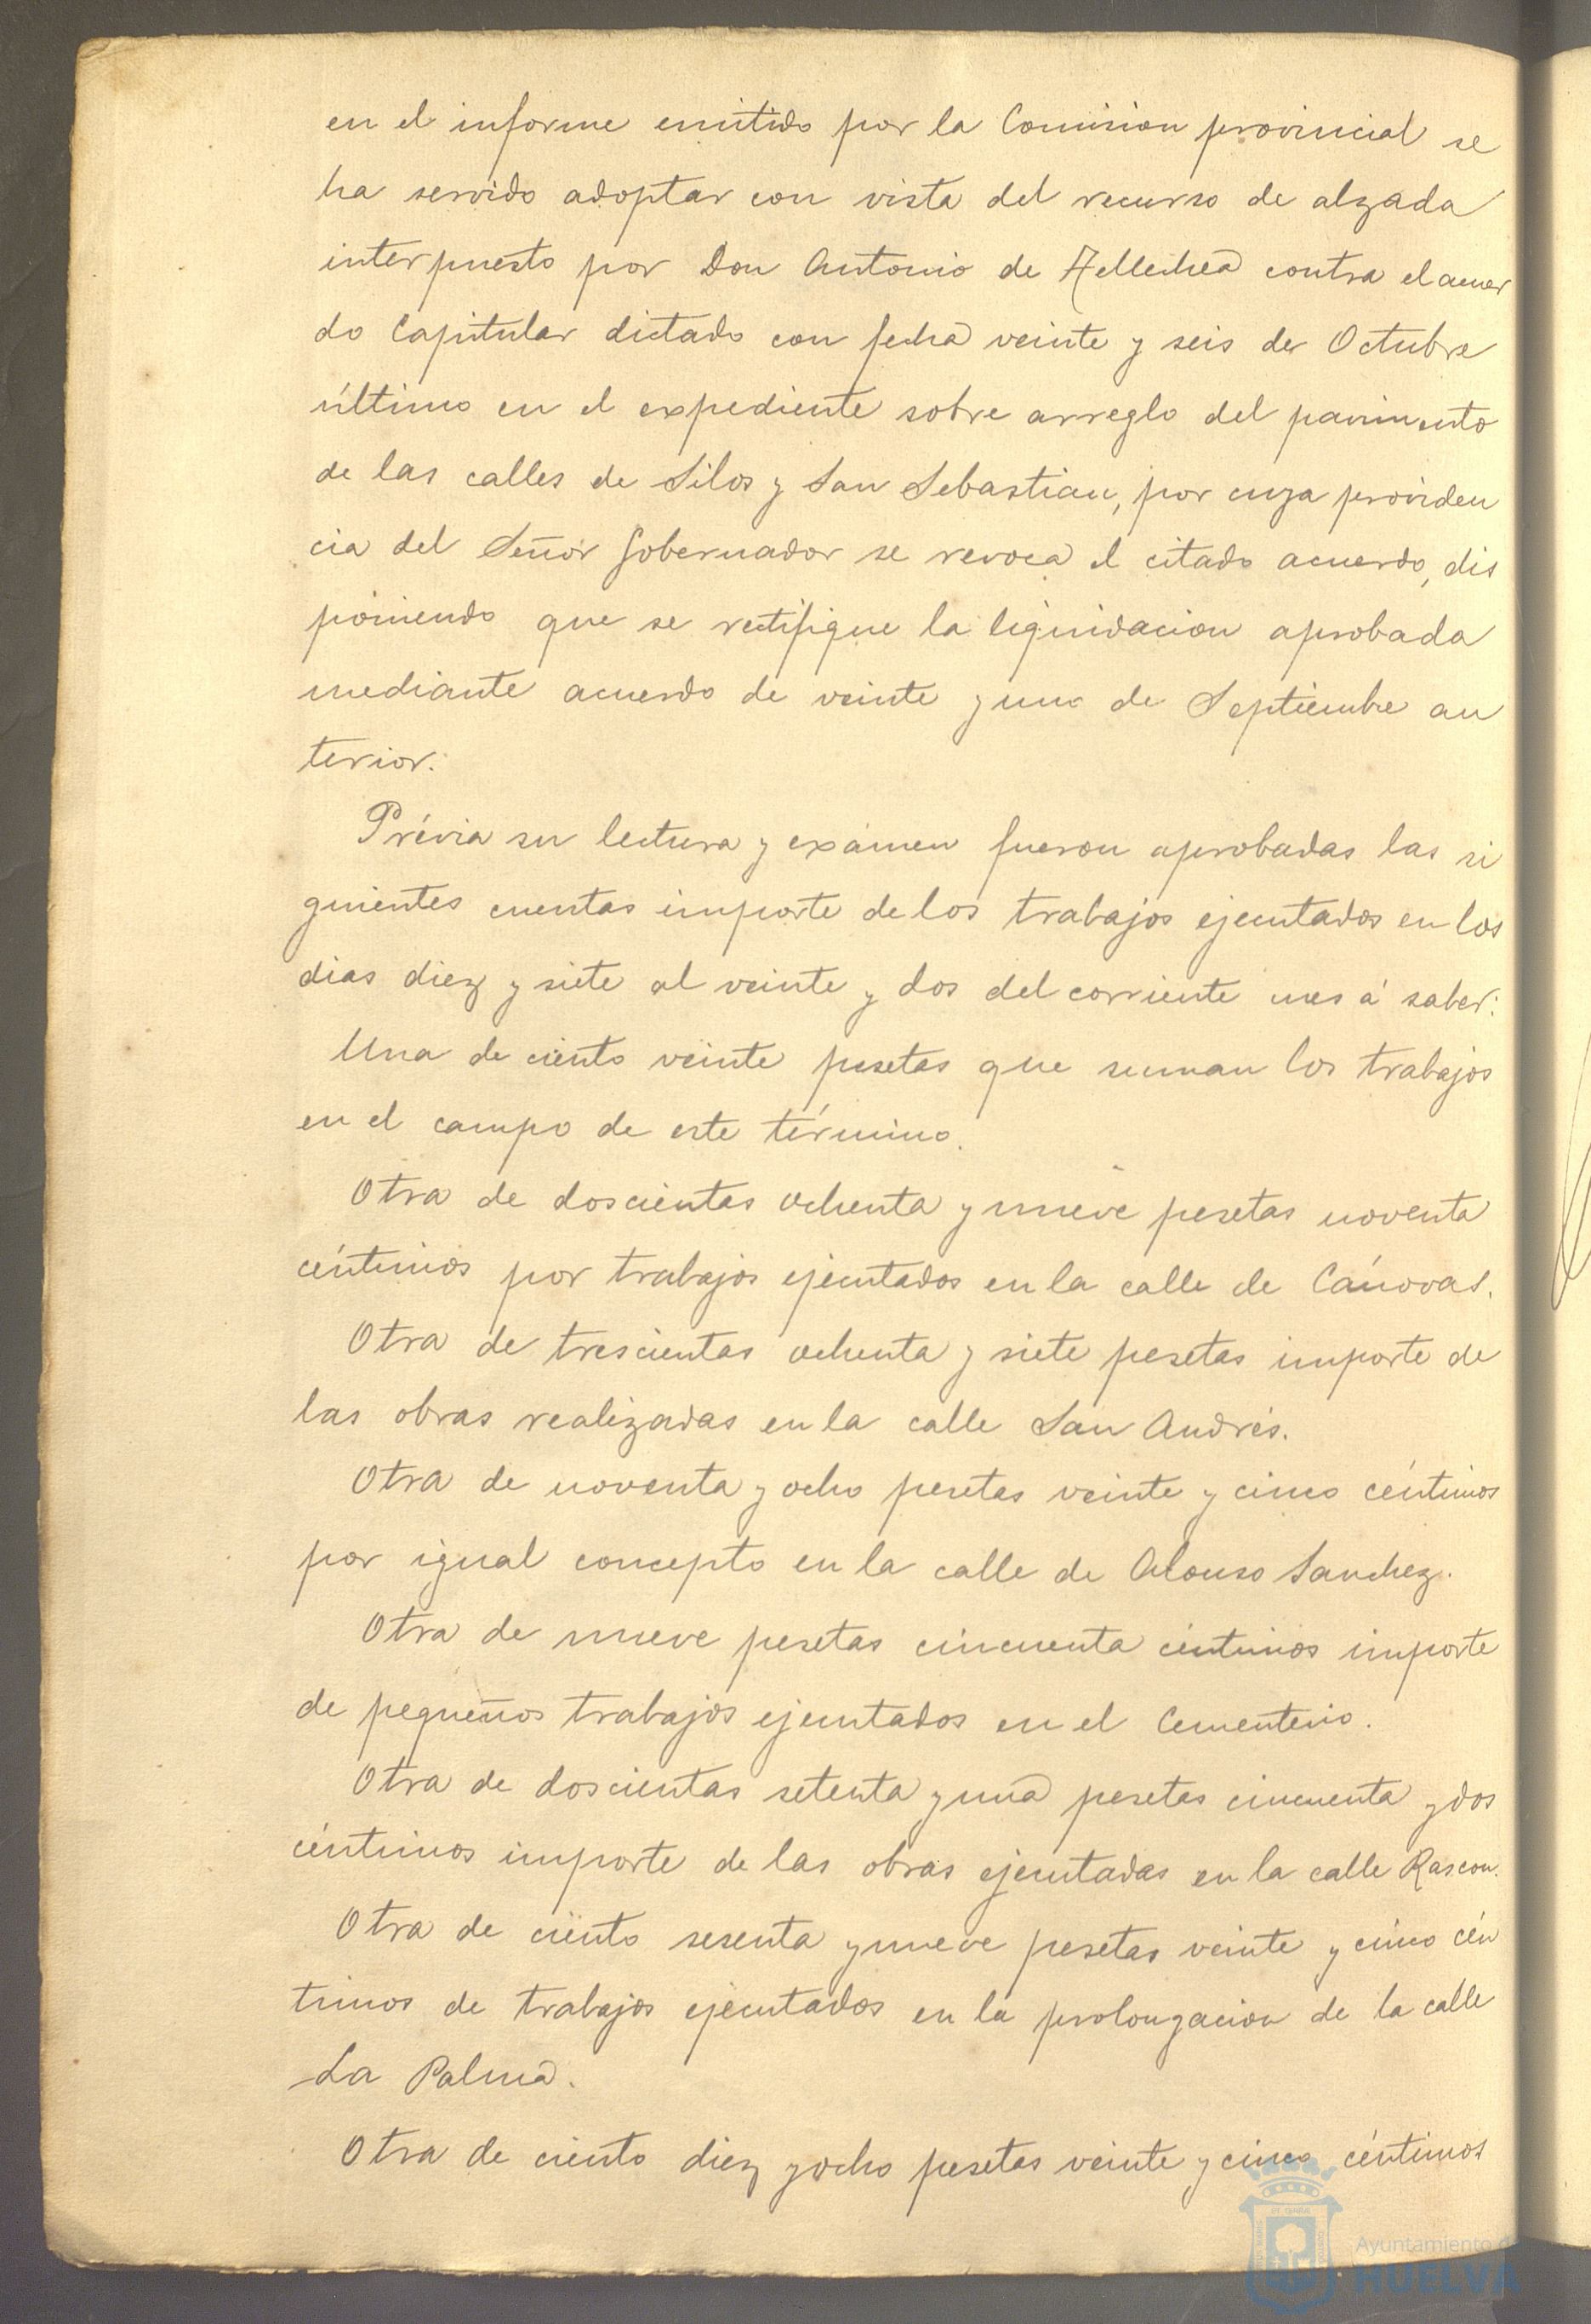 en el informe emitido por la Comision provincial se
ha servido adoptar con vista del recurso de alzada
interpuesto por Don Antonio de Tellechea contra el acuer
do Capitular dictado con fecha veinte y seis de Octubre
último en el expediente sobre arreglo del pavimento
de las calles de Silos y San Sebastian, por cuya providen
cia del Señor Gobernador se revoca el citado acuerdo, dis
poniendo que se rectifique la liquidacion aprobada
mediante acuerdo de veinte y uno de Septiembre an
terior.
Prévia su lectura y exámen fueron aprobadas las si
guientes cuentas importe de los trabajos ejecutados en los
dias diez y siete al veinte y dos del corriente mes á saber:
Una de ciento veinte pesetas que suman los trabajos
en el campo de este término.
Otra de doscientas ochenta y nueve pesetas noventa
céntimos por trabajos ejecutados en la calle de Cánovas.
Otra de trescientas ochenta y siete pesetas importe de
las obras realizadas en la calle San Andrés.
Otra de noventa y ocho pesetas veinte y cinco céntimos
por igual concepto en la calle de Alonso Sanchez.
Otra de nueve pesetas cincuenta céntimos importe
de pequeños trabajos ejecutados en el Cementerio.
Otra de doscientas setenta y una pesetas cincuenta y dos
céntimos importe de las obras ejecutadas en la calle Rascon.
Otra de ciento sesenta y nueve pesetas veinte y cinco cén
timos de trabajos ejecutados en la prolongacion de la calle
La Palma.
Otra de ciento diez y ocho pesetas veinte y cinco céntimos
Ayuntamiento d
HUELVA